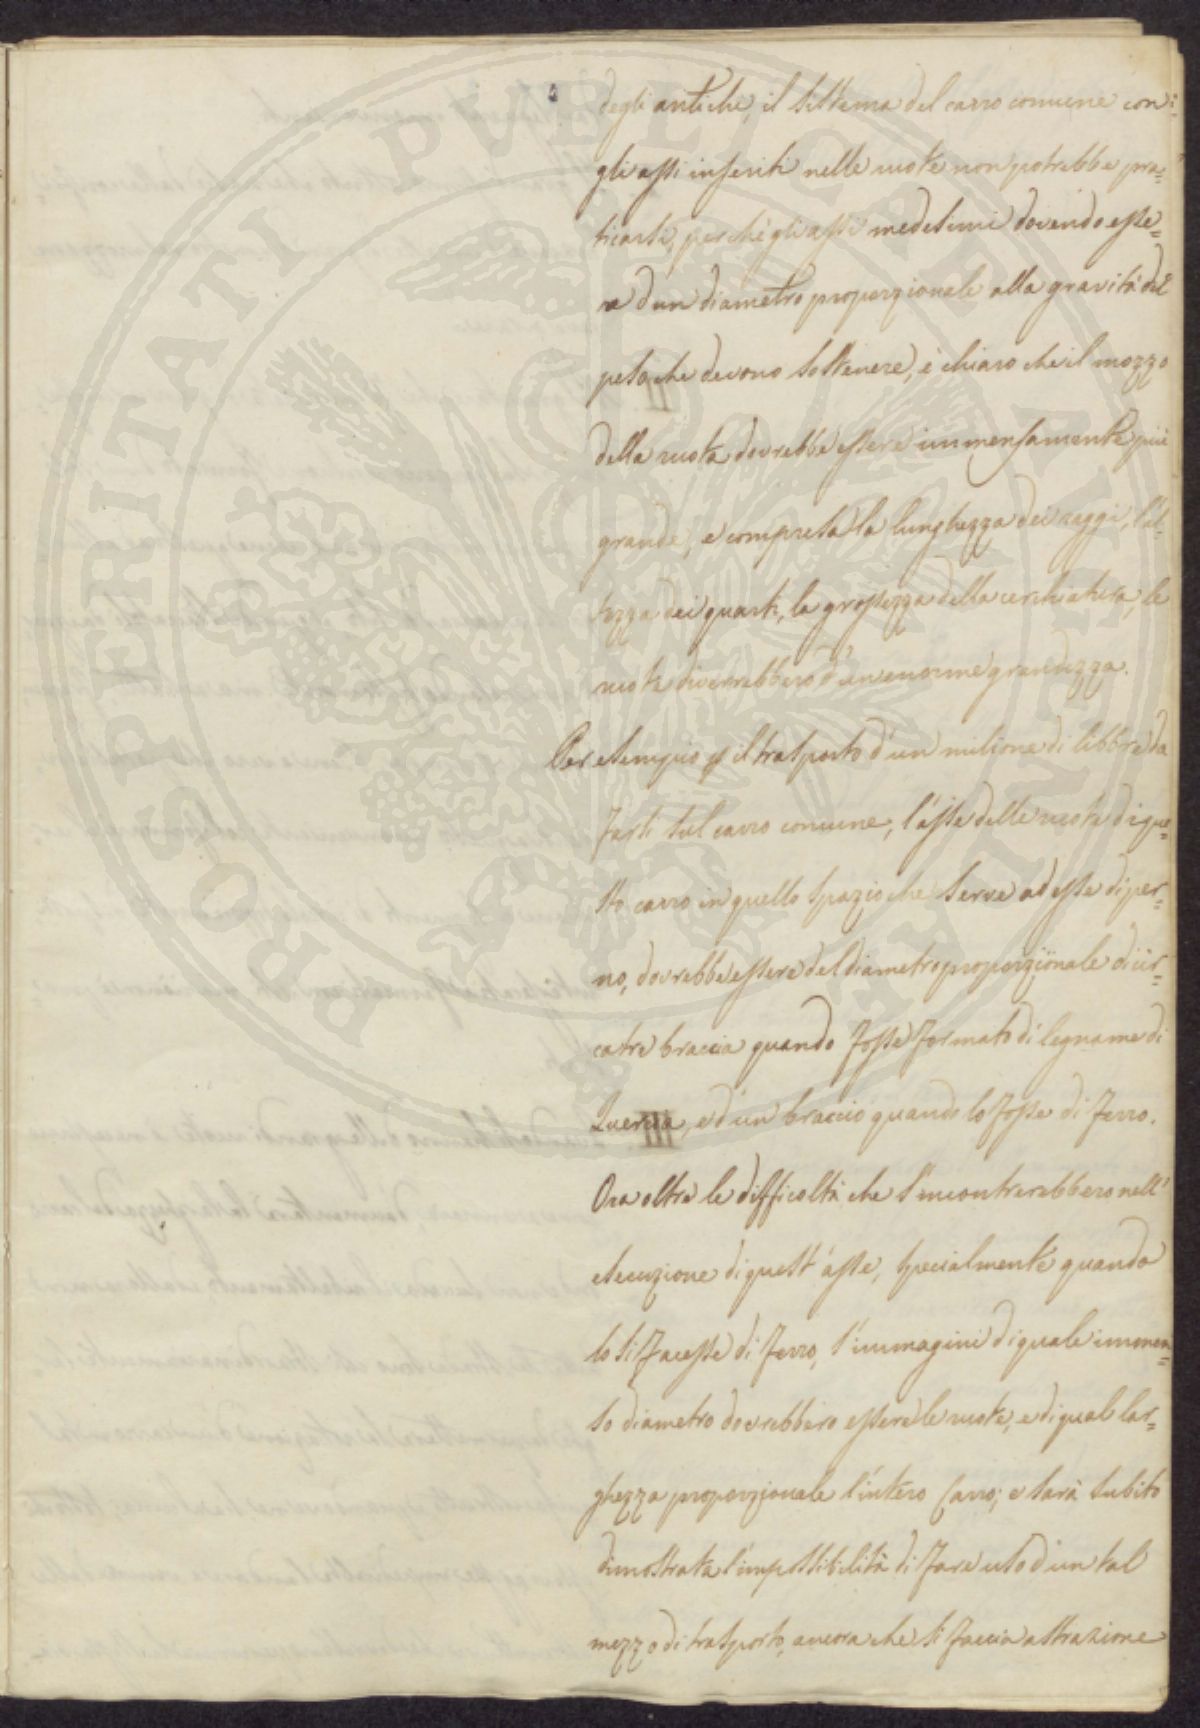 degli antichi, il sistema del carro comune con
gli assi inseriti nelle ruote non potrebbe pra=
ticarsi, perchè gli assi medesimi dovendo esse=
re d'un diametro proporzionale alla gravità del
peso che devono sostenere, è chiaro che il mozzo
della ruota dovrebbe essere immensamente più
grande, e compresa la lunghezza dei raggi, l'al=
tezza dei quarti, la grossezza della cerchiatura, le
ruote diverrebbero d'un enorme grandezza.
Per esempio il trasporto d'un milione di libbre da
farsi sul carro comune, l'asse delle ruote di que=
sto carro in quello spazio che serve ad esse di per=
no, dovrebbe essere del diametro proporzionale di cir=
ca tre braccia quando fosse formato di legname di
Quercia, e d'un braccio quando lo fosse di ferro.
Ora oltre le difficoltà che s'incontrerebbero nell'
esecuzione di quest'asse, specialmente quando
lo si facesse di ferro, s'immagini di quale immen=
so diametro dovrebbero essere le ruote, e di qual lar=
ghezza proporzionale l'intero Carro; e sarà subito
dimostrata l'impossibilità di fare uso d'un tal
mezzo di trasporto, ancora che si faccia astrazione
PROSPERITATI PUBLICAE AUGENDAE